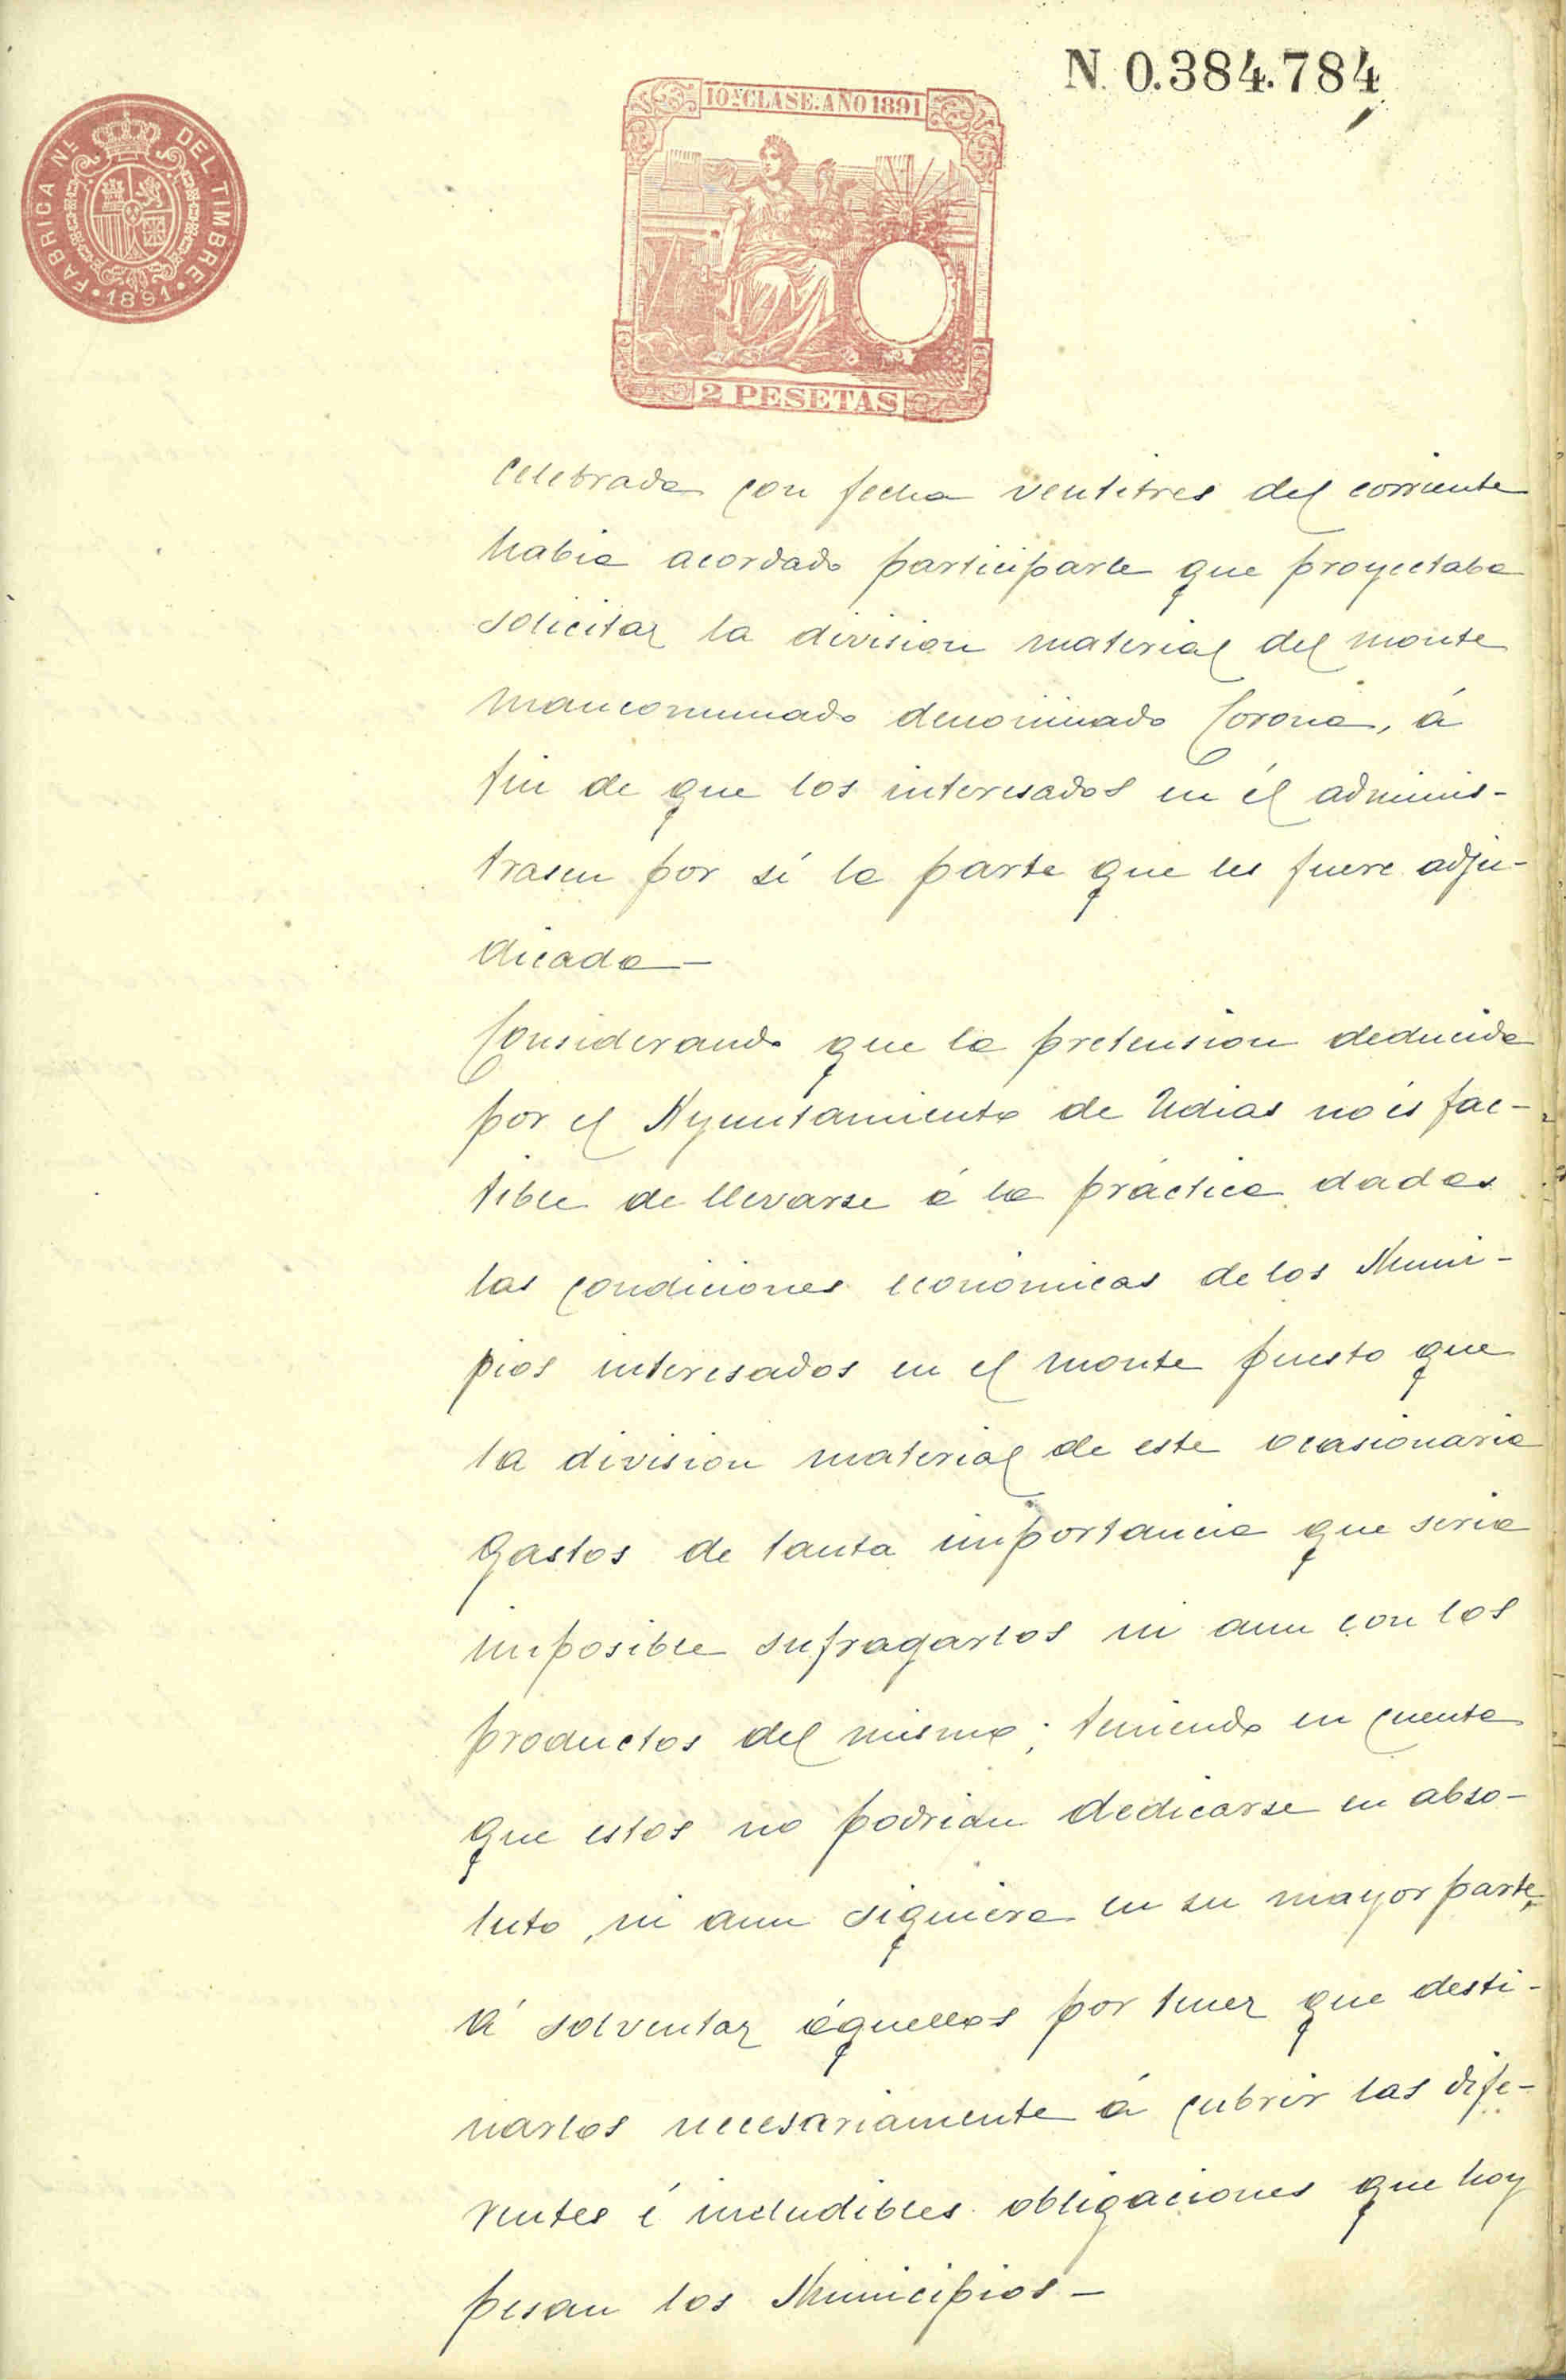 N. 0.384.784
FABRICA Nˡ. DEL TIMBRE
1891
10ª CLASE. AÑO 1891
2 PESETAS
celebrada con fecha ventitres del corriente
habia acordado participarle que proyectaba
solicitar la division material del monte
mancomunado denominado Corona, á
fin de que los interesados en él adminis-
trasen por sí la parte que les fuere adju-
dicada—
Considerando que la pretension deducida
por el Ayuntamiento de Udias no és fac-
tible de llevarse á la práctica dadas
las condiciones económicas de los Muni-
pios interesados en el monte puesto que
la division material de este ocasionaria
gastos de tanta importancia que seria
imposible sufragarlos ni aun con los
productos del mismo; teniendo en cuenta
que estos no podrian dedicarse en abso-
luto, ni aun siquiera en su mayor parte,
á solventar áquellos por tener que desti-
narlos necesariamente á cubrir las dife-
rentes é ineludibles obligaciones que hoy
pesan los Municipios—